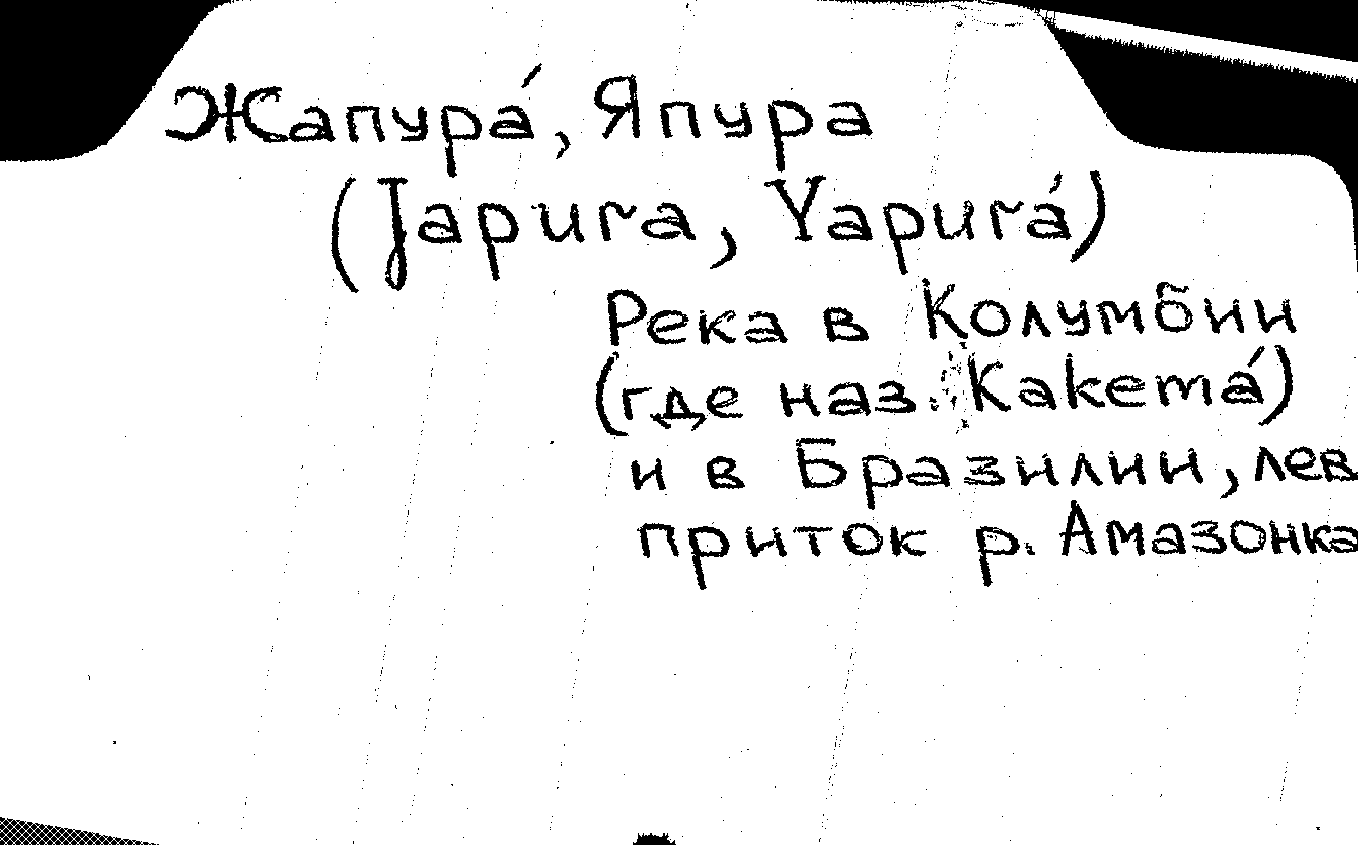 Жапура́, Япура
(Japura, Yapurá)
Река в Колумбии
(где наз. Какета́)
и в Бразилии, лев
приток р. Амазонка